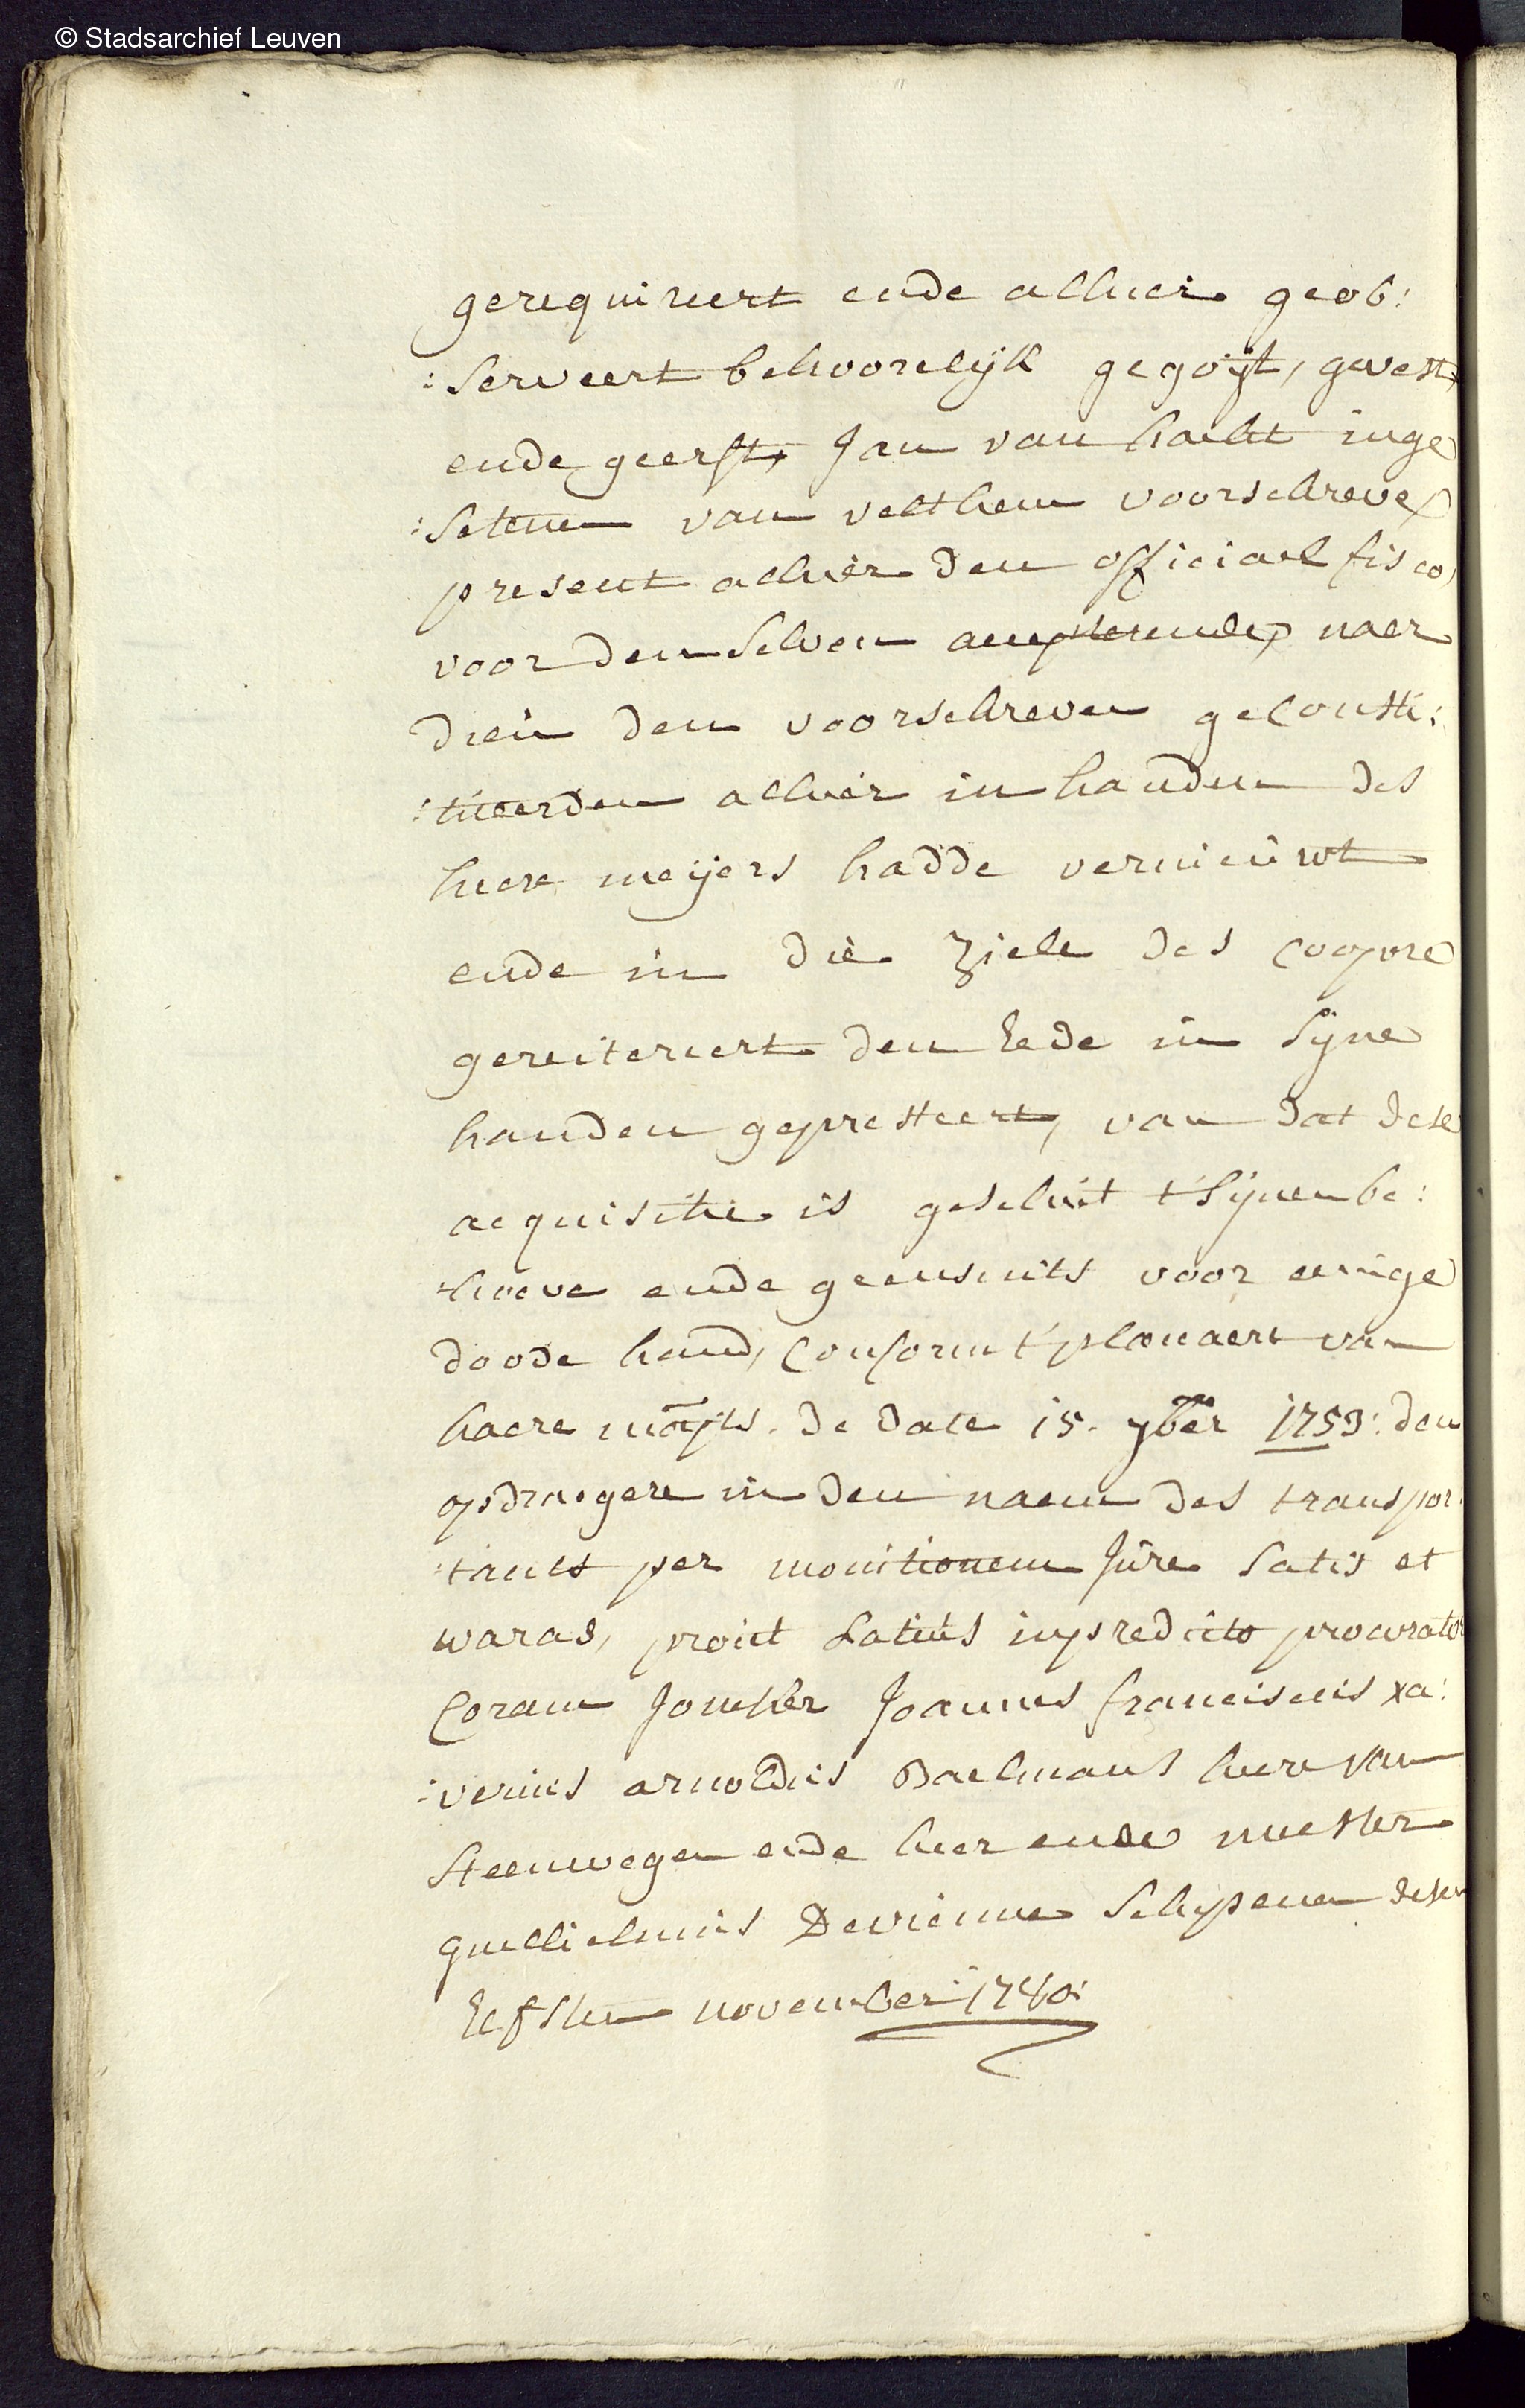 © Stadsarchief Leuven
gerequireert ende alhier geob:
:serveert behoorelijk gegoijt, gevest,
ende geerft, Jan van hacht inge
:setenen van velthem voorschreve
present alhier den officiael fisco,
voor den selven accepterende, naer
dien den voorschreven geconsti:
:tueerden alhier in handen des
heere meijers hadde vernieuwt
ende in die ziele des coopere
gereitereert den Eede in sijne
handen gepresteert, van dat dese
acquisitie is geschiet t'sijnen be:
:hoeve ende geensints voor eenige
doode hand, conform t'placcaert van
haere maj'ts. de date 15. 7ber 1753: den
opdragere in den naem des transpor:
:tants per monitionem Jure satis et
waras, prout latius in predicto procurato
Coram Joncker Joannes franciscus xa:
:verius arnoldus Baelmans heere van
Steenwegen ende heer ende meester
guillielmus Devienne Schepenen deser
Eersten november 1780: